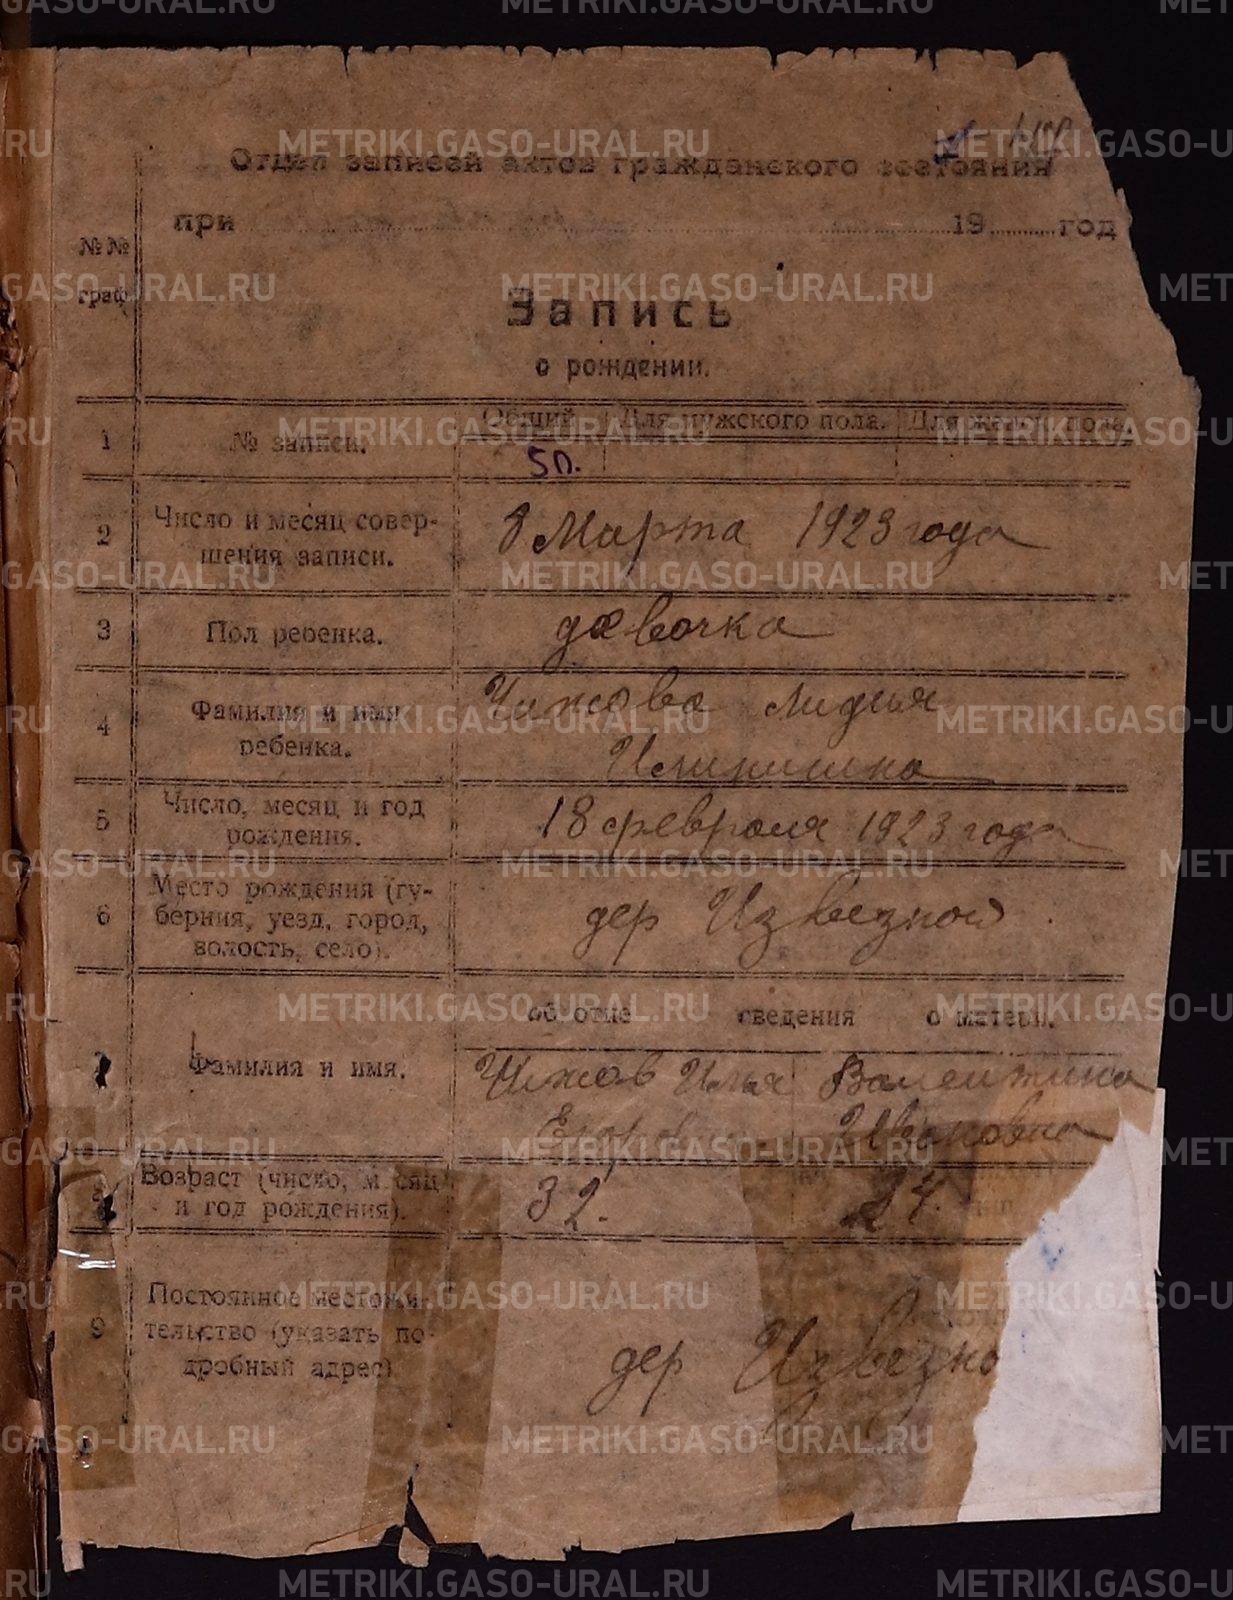 METRIKI.GASO-URAL.RU
Отдел записей актов гражданского состояния
при 19 год
№№
граф
Запись
о рождении.
1 № записи. Общий Для мужского пола. Для женск. пола.
5п.
2 Число и месяц совер-
шения записи. 8 Марта 1923 года
3 Пол ребенка. девочка
4 Фамилия и имя
ребенка. Чижова Лидия
Илинишна
5 Число, месяц и год
рождения. 18 февраля 1923 года
6 Место рождения (гу-
берния, уезд, город,
волость, село). дер Извезной
об отце сведения о матери.
7 Фамилия и имя. Чижов Илья Валентина
Ивановна
Возраст (число, м сяц
и год рождения). 32. 24.
9 Постоянное местожи-
тельство (указать по-
дробный адрес) дер Извезно